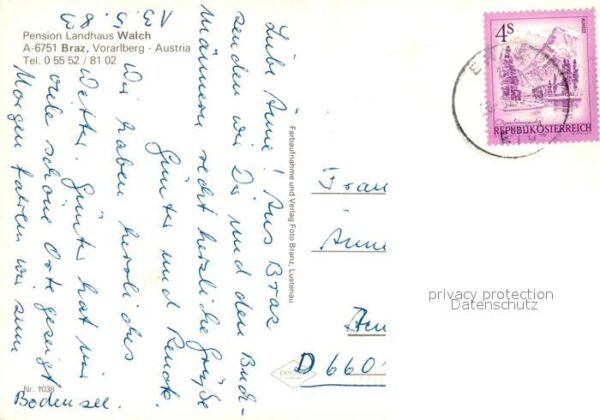 Pension Landhaus Walch
A-6751 Braz, Vorarlberg - Austria
Tel. 0 55 52 / 81 02
13.5.83
Liebe Anne! Aus Braz
senden wir Dir und den
Männern recht herzliche Grüße
Günter und Renate.
Wir haben herrliches
Wetter. Günter hat mir
viele schöne Orte gezeigt
Morgen fahren wir zum
Bodensee.
Nr. 1038
Farbaufnahme und Verlag Foto Branz, Lustenau
4S
ALMSEE
REPUBLIK ÖSTERREICH
Frau
Anne
D 660
privacy protection
Datenschutz